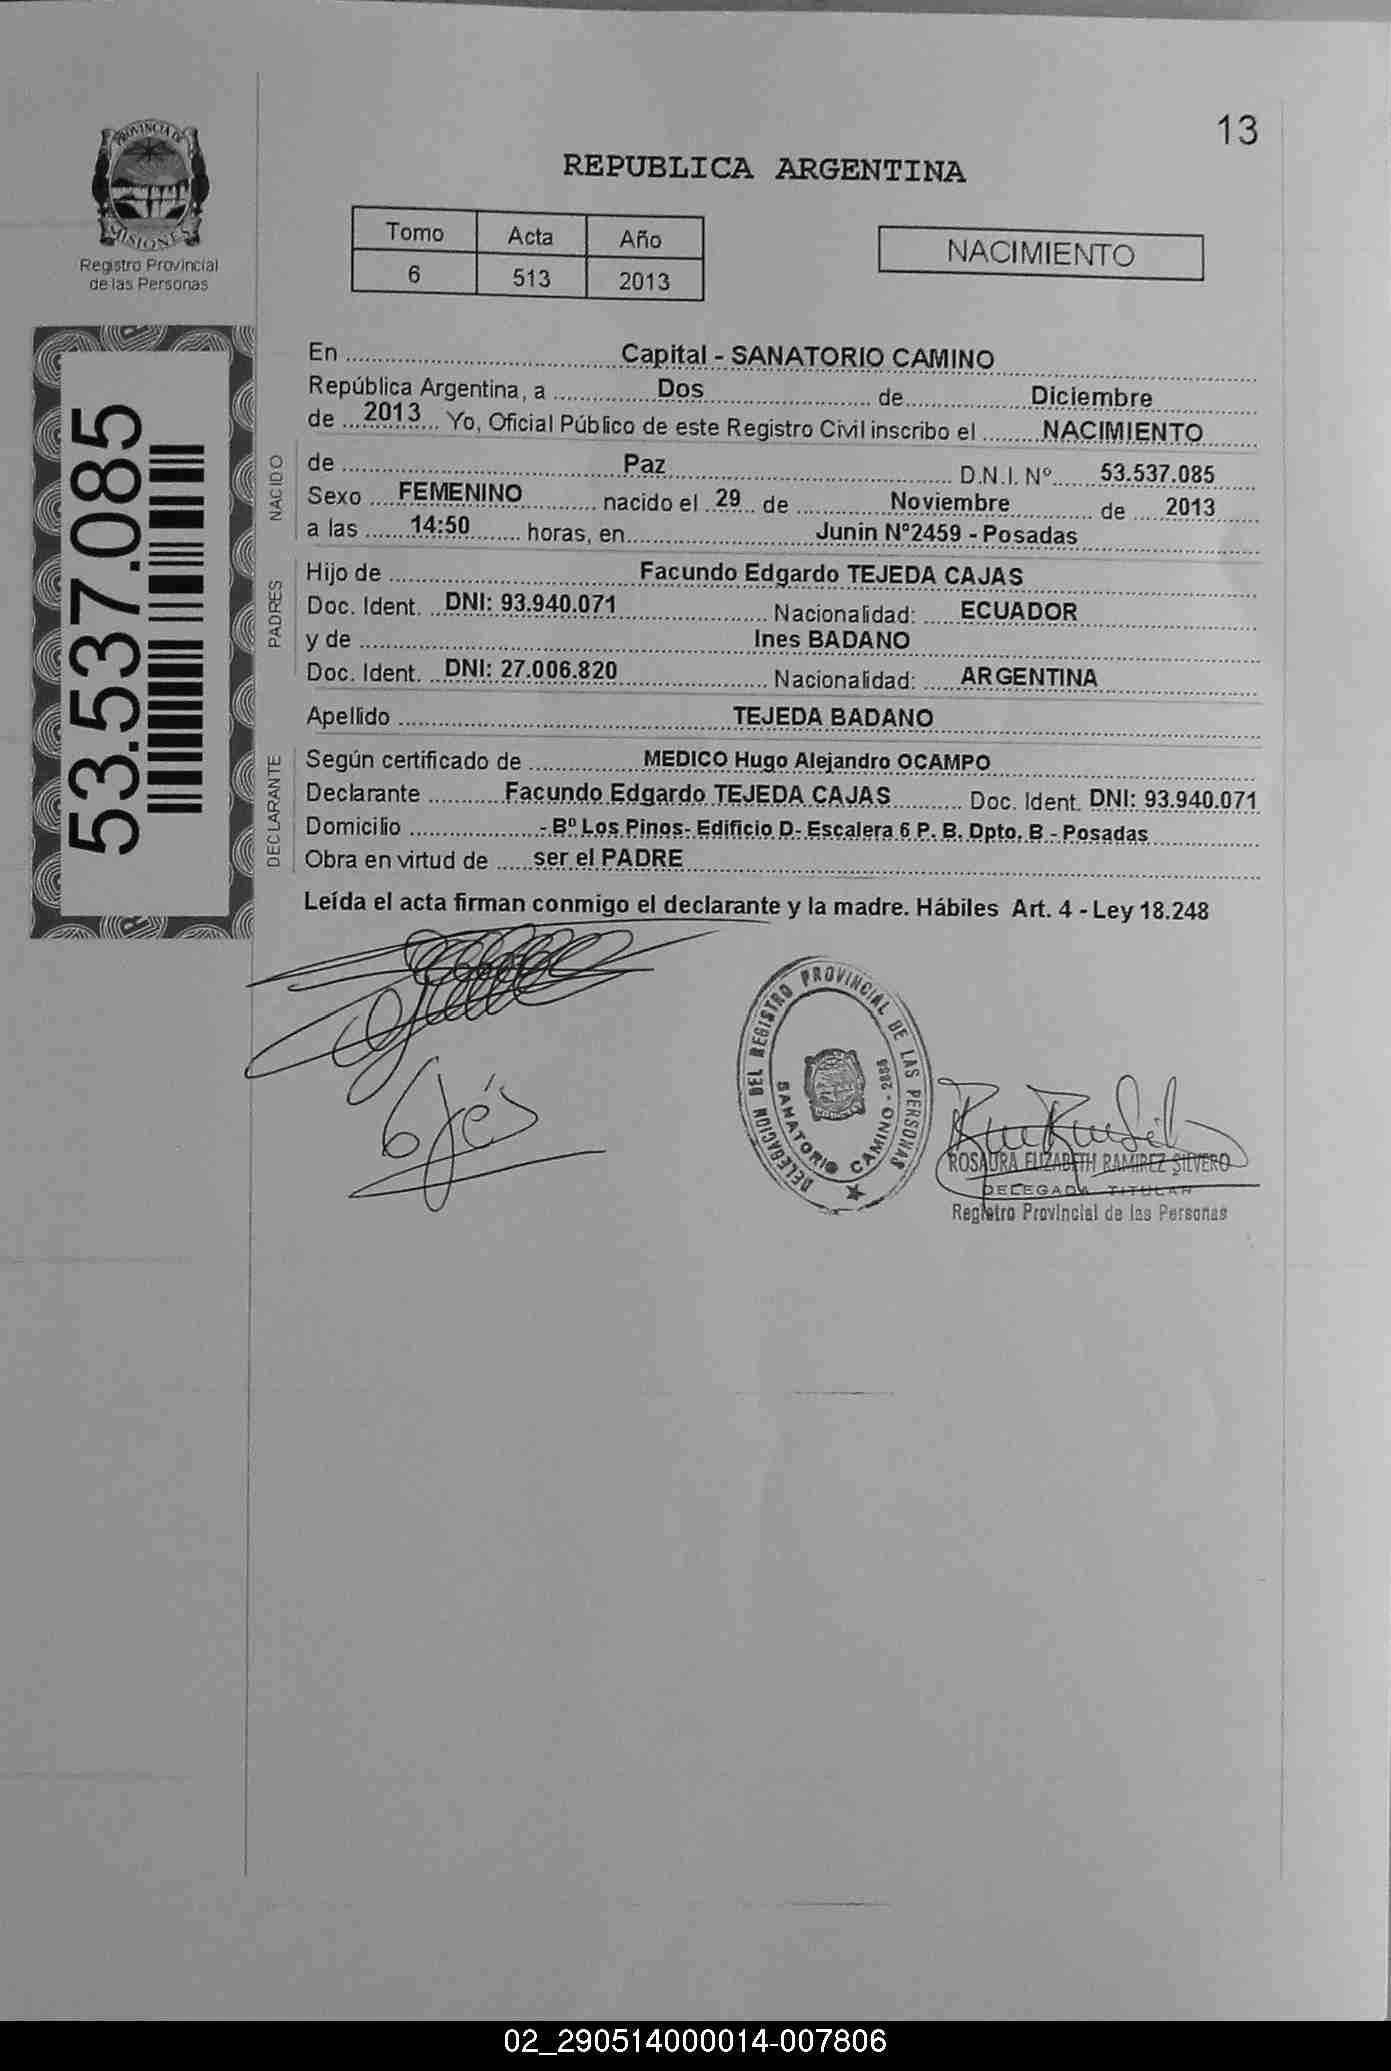 13
REPUBLICA ARGENTINA
PROVINCIA DE
MISIONES
Registro Provincial
de las Personas
Tomo Acta Año
6 513 2013
NACIMIENTO
53.537.085
En Capital - SANATORIO CAMINO
República Argentina, a Dos de Diciembre
de 2013 Yo, Oficial Público de este Registro Civil inscribo el NACIMIENTO
NACIDO
de Paz D.N.I. Nº 53.537.085
Sexo FEMENINO nacido el 29 de Noviembre de 2013
a las 14:50 horas, en Junin Nº2459 - Posadas
PADRES
Hijo de Facundo Edgardo TEJEDA CAJAS
Doc. Ident. DNI: 93.940.071 Nacionalidad: ECUADOR
y de Ines BADANO
Doc. Ident. DNI: 27.006.820 Nacionalidad: ARGENTINA
Apellido TEJEDA BADANO
DECLARANTE
Según certificado de MEDICO Hugo Alejandro OCAMPO
Declarante Facundo Edgardo TEJEDA CAJAS Doc. Ident. DNI: 93.940.071
Domicilio - Bº Los Pinos- Edificio D- Escalera 6 P. B. Dpto. B - Posadas
Obra en virtud de ser el PADRE
Leída el acta firman conmigo el declarante y la madre. Hábiles Art. 4 - Ley 18.248
DELEGACION DEL REGISTRO PROVINCIAL DE LAS PERSONAS
SANATORIO CAMINO -
ROSAURA ELIZABETH RAMIREZ SILVERO
DELEGADA TITULAR
Registro Provincial de las Personas
02_290514000014-007806